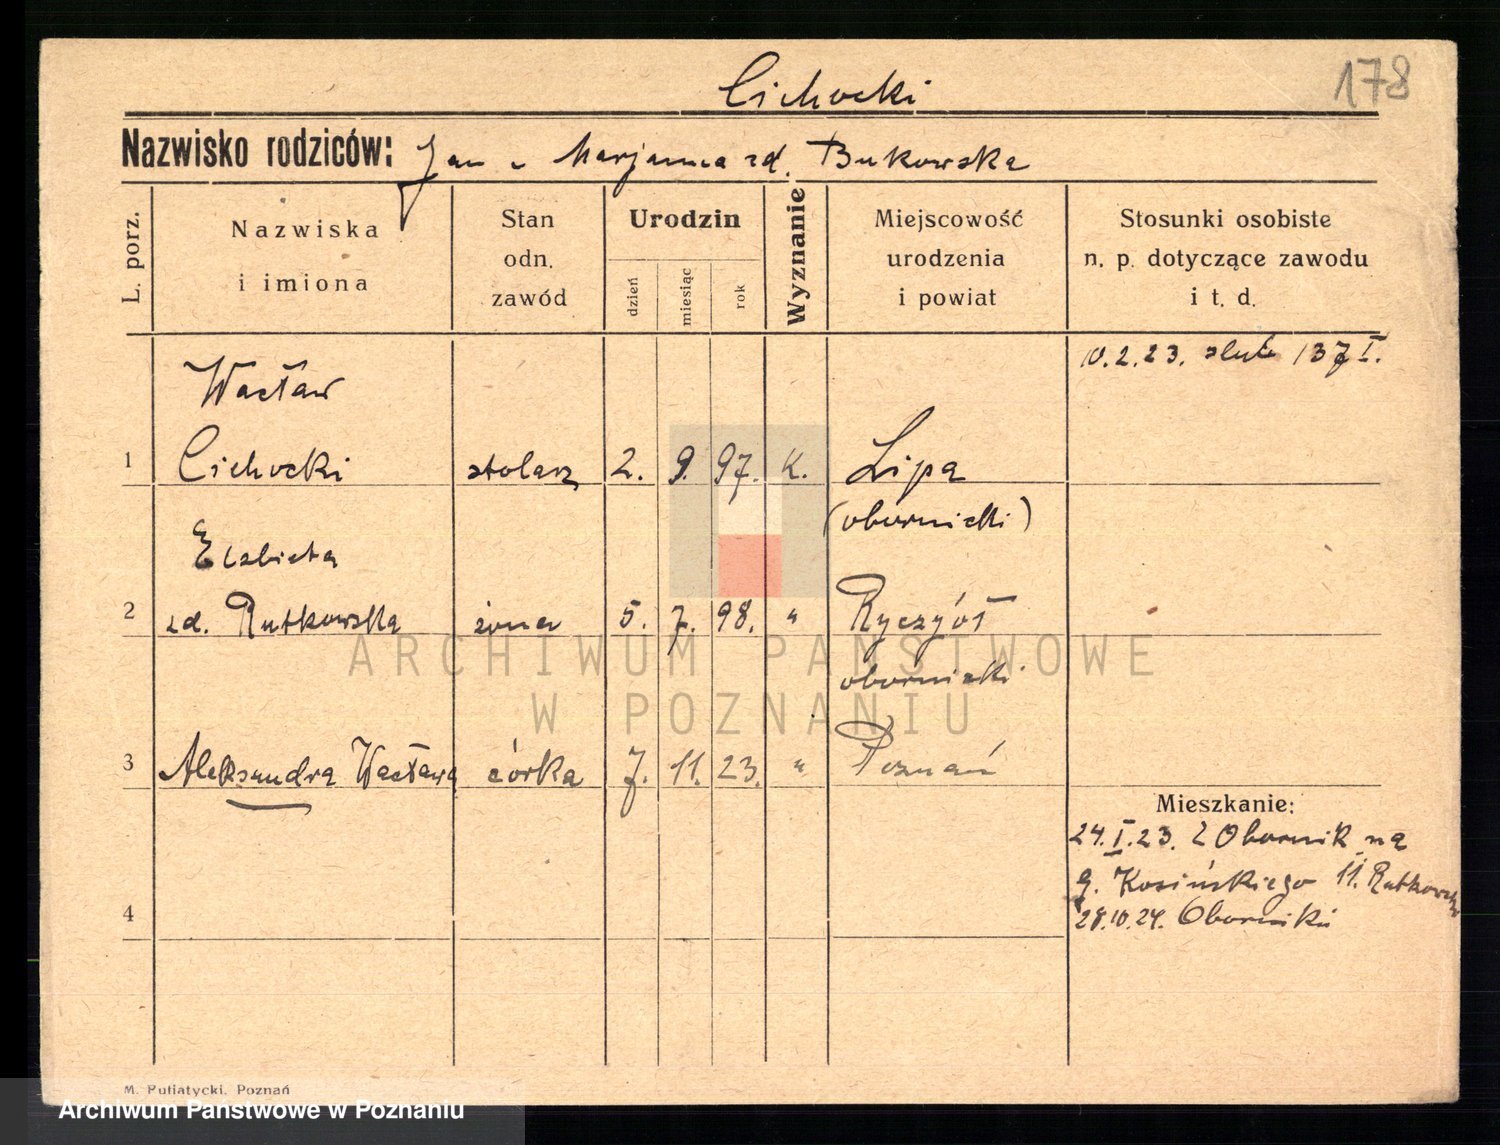 178
Cichocki
Nazwisko rodziców: Jan i Marjanna zd. Bukowska
L. porz.
Nazwiska i imiona
Stan odn. zawód
Urodzin
dzień
miesiąc
rok
Wyznanie
Miejscowość urodzenia i powiat
Stosunki osobiste n. p. dotyczące zawodu i t. d.
10.2.23. 137 I.
Wacław
1 Cichocki stolarz 2. 9. 97. K. Lipa
(obornicki)
Elzbieta
2 zd. Rutkowska żona 5. 7. 98. " Ryczyół
obornicki
3 Aleksandra Wacława córka 7. 11. 23. " Poznań
Mieszkanie:
24.I.23. Z Obornik na
g. Kosińskiego 11. Rutkowski
4
28.10.24. Oborniki
M. Putiatycki, Poznań
ARCHIWUM PAŃSTWOWE
W POZNANIU
Archiwum Państwowe w Poznaniu